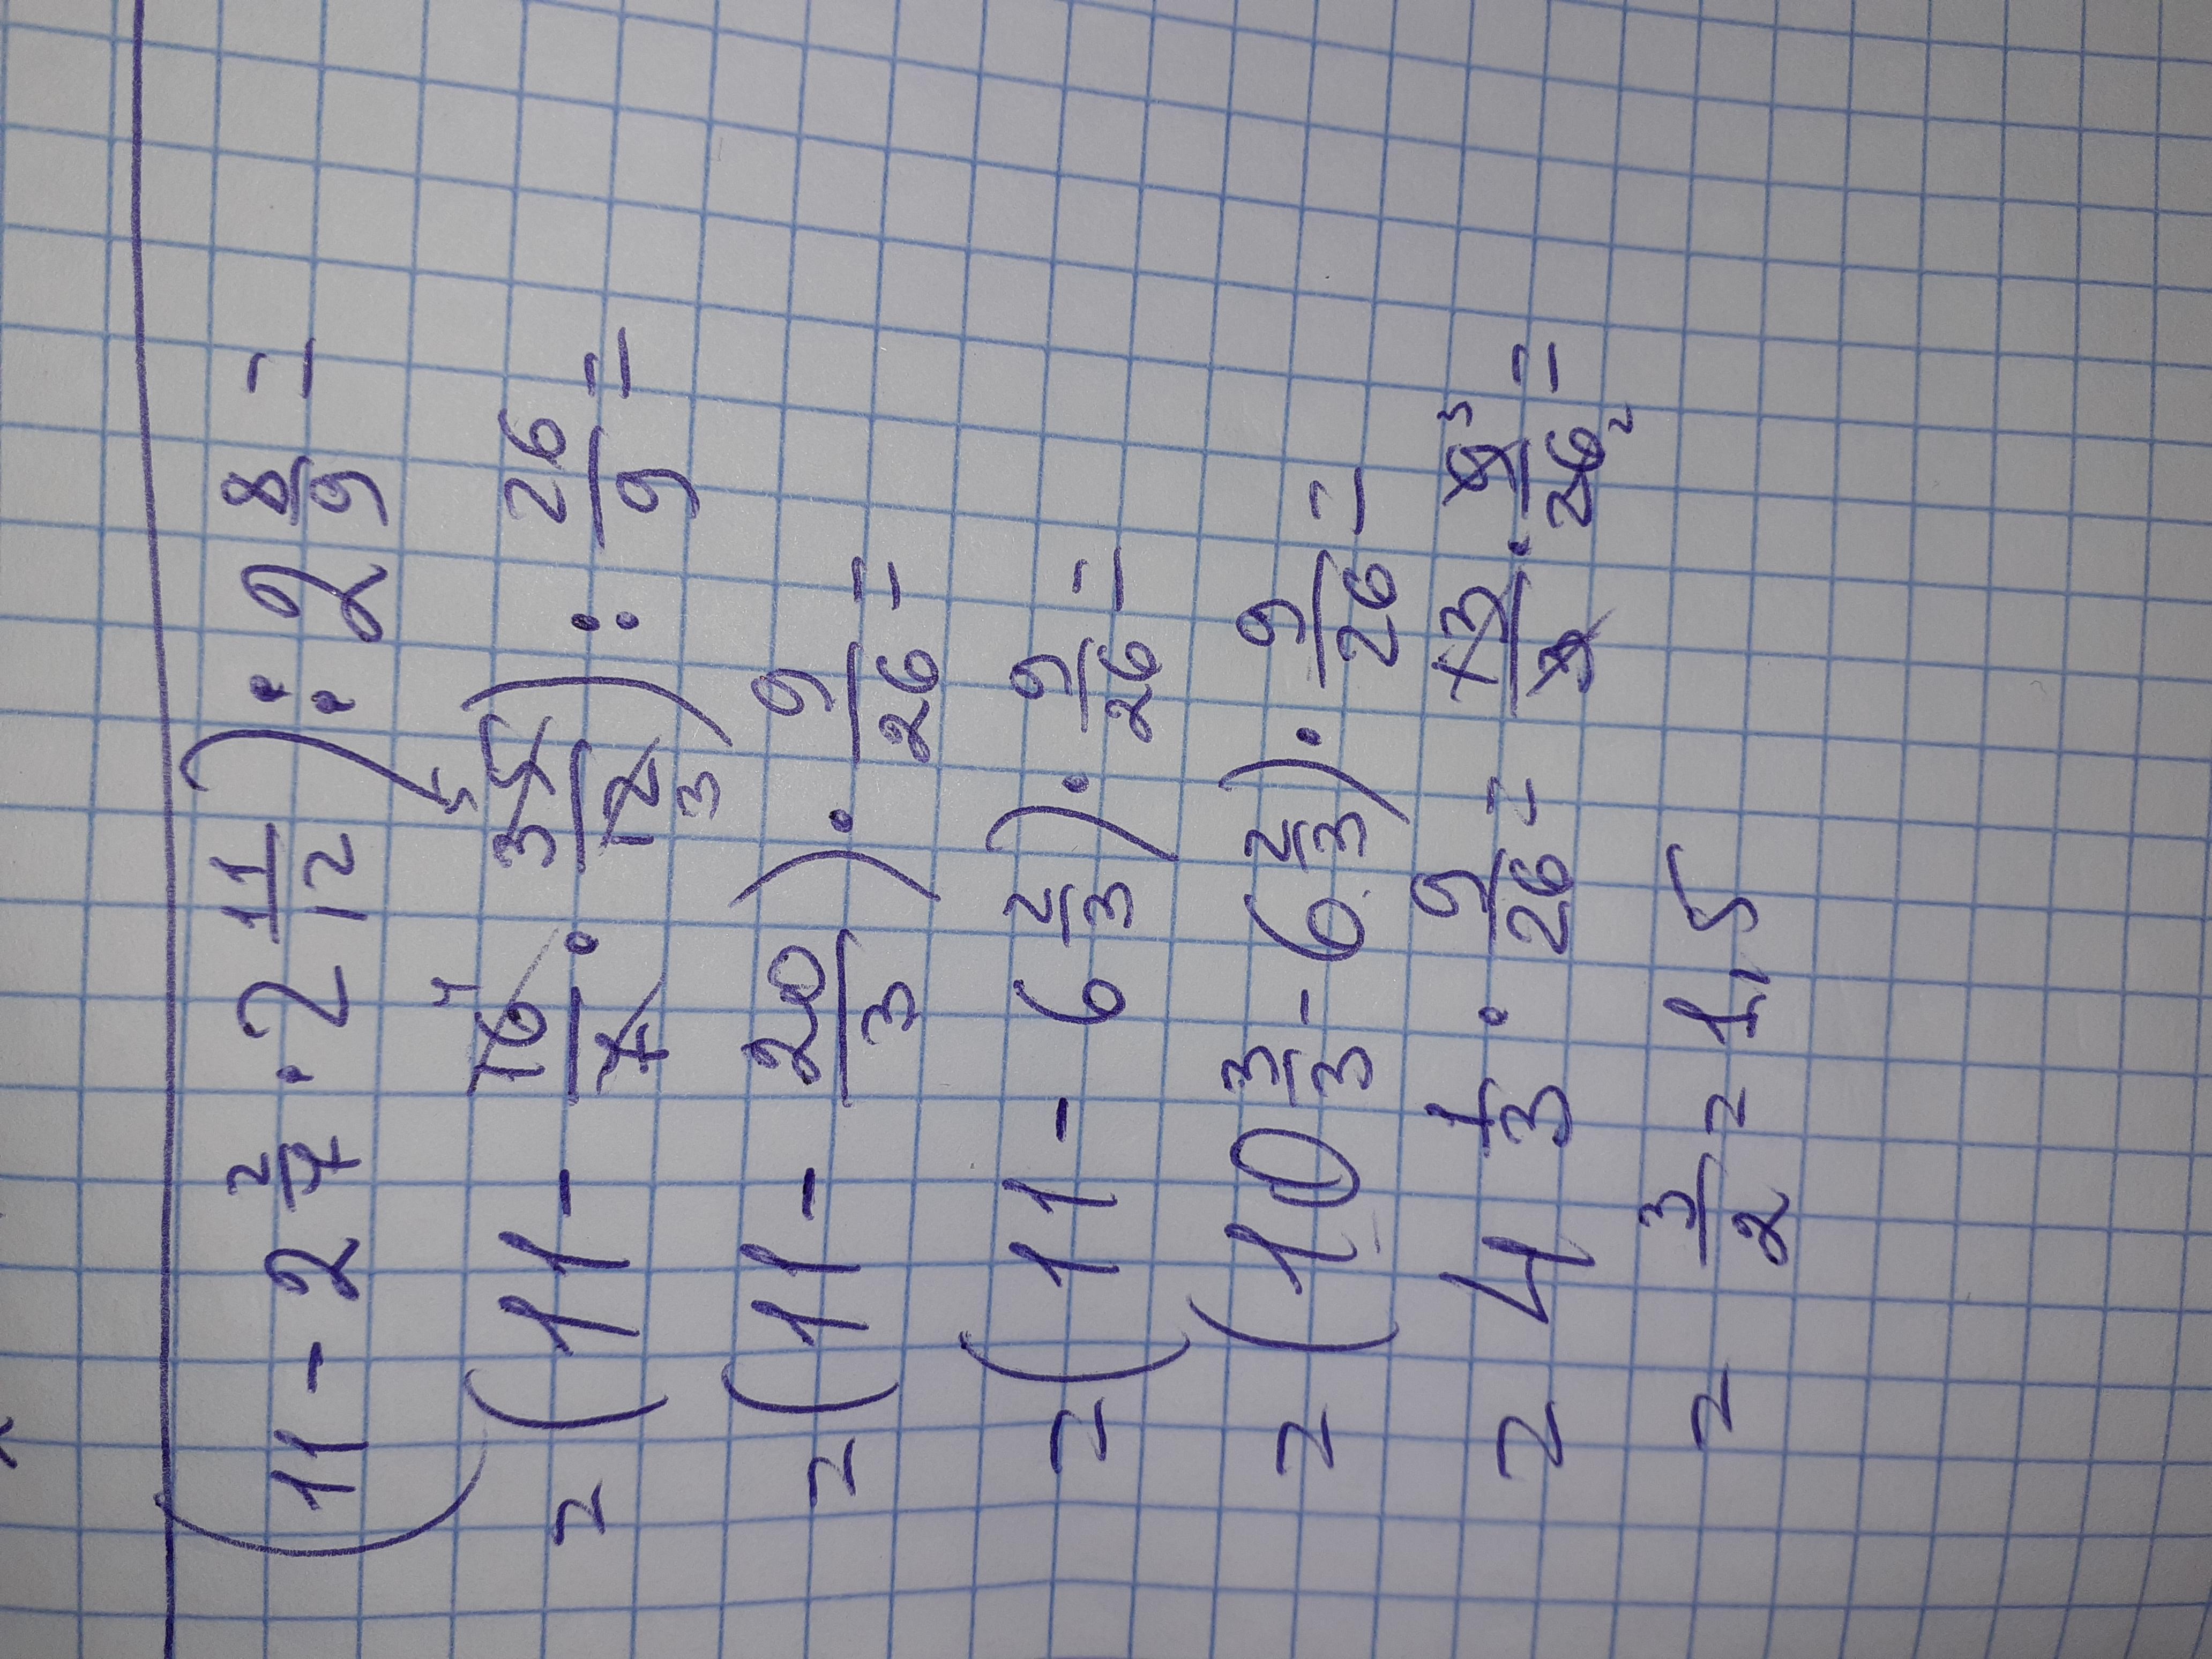 (11 - 2 2/7 · 2 11/12) : 2 8/9 =
= (11 - 16⁴/7 · 35⁵/12₃) : 26/9 =
= (11 - 20/3) · 9/26 =
= (11 - 6 2/3) · 9/26 =
= (10 3/3 - 6 2/3) · 9/26 =
= 4 1/3 · 9/26 = 13/3 · 9³/26₂ =
= 3/2 = 1,5